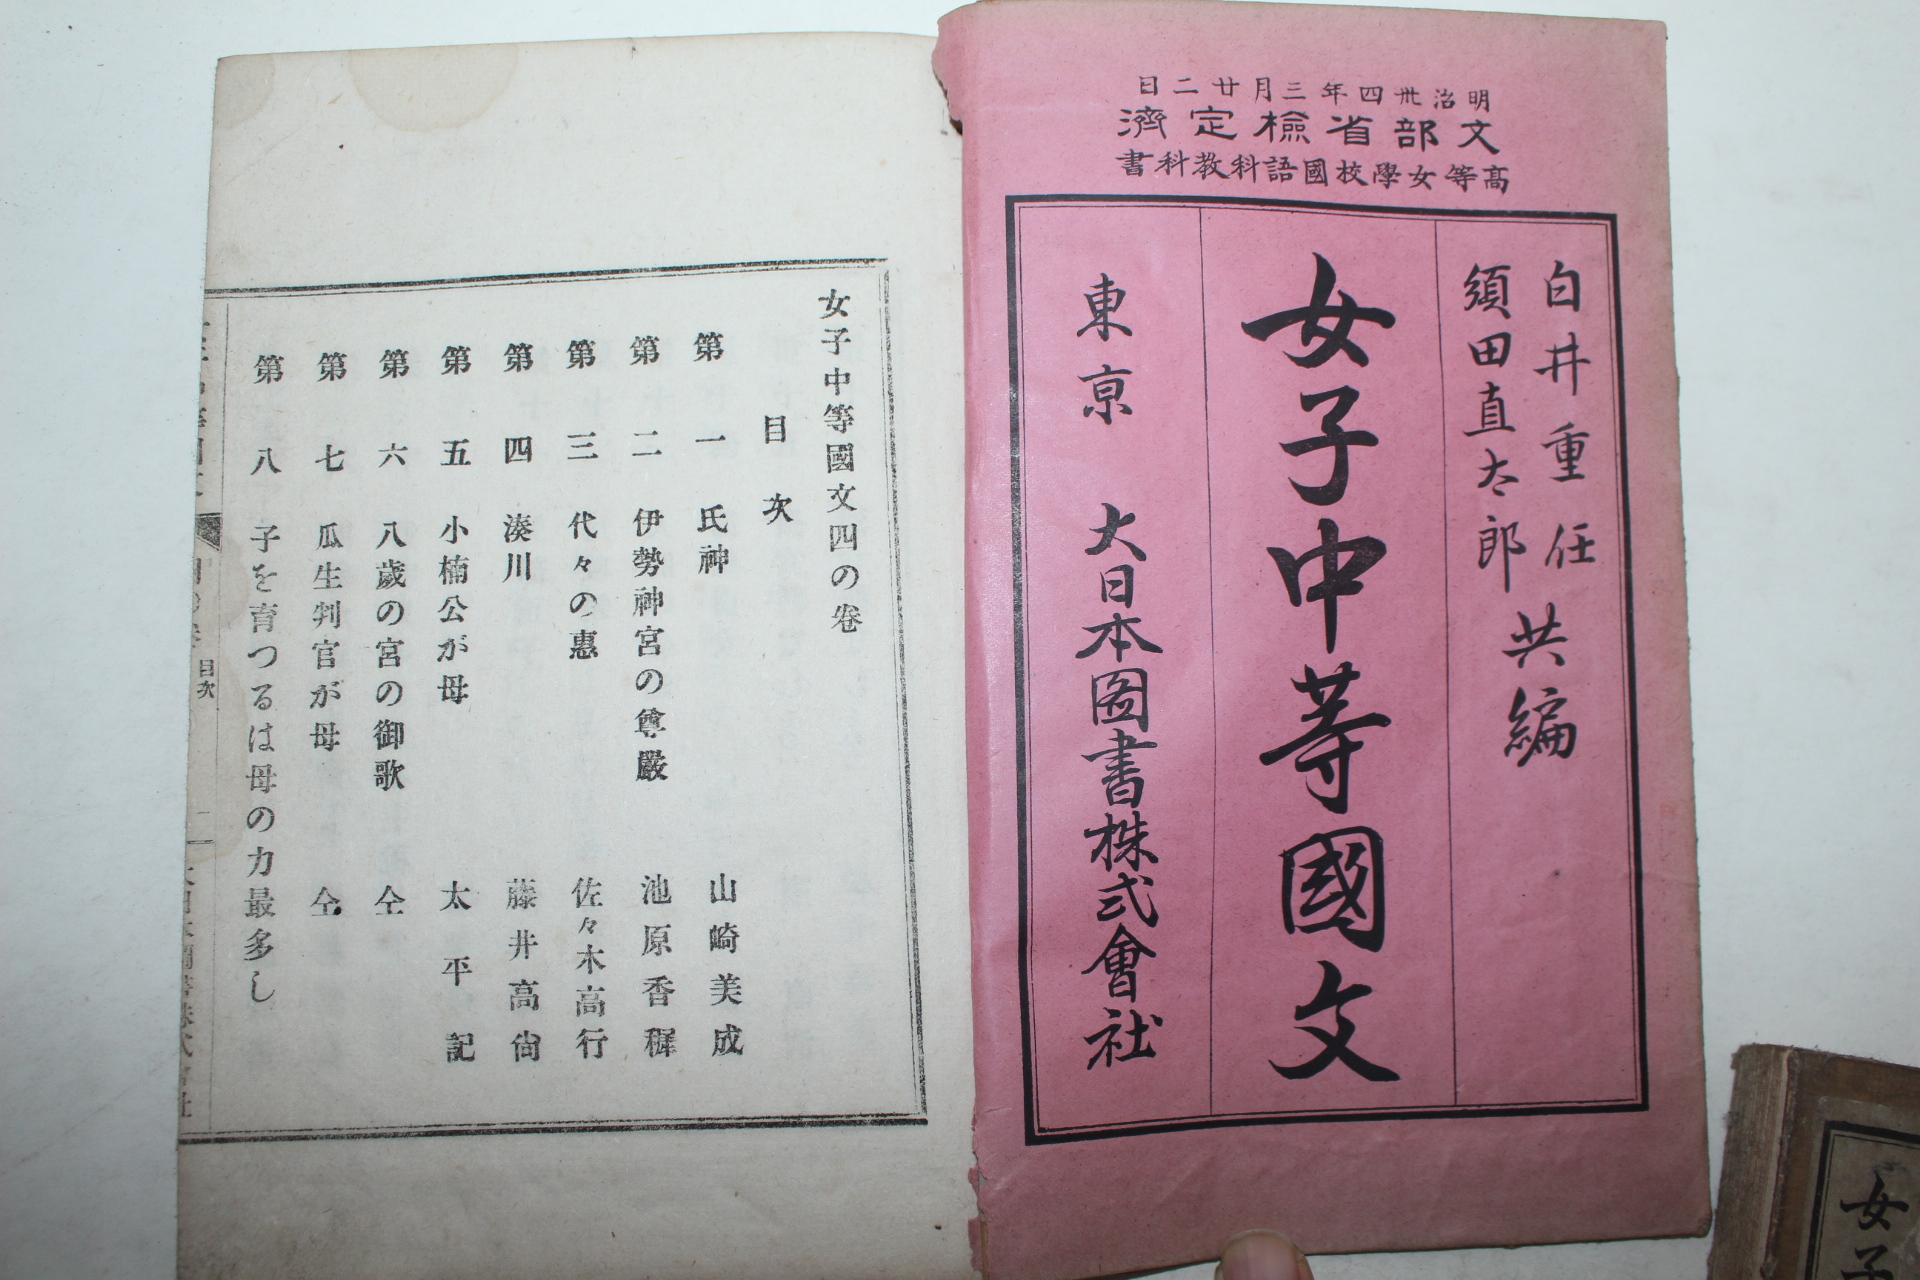 明治卅四年三月廿二日
文部省檢定濟
高等女學校國語科教科書
白井重任
須田直太郎
共編
女子中等國文
東京 大日本圖書株式會社
女子中等國文四の卷
目次
第一 氏神 山崎美成
第二 伊勢神宮の尊嚴 池原香穉
第三 代々の惠 佐々木高行
第四 湊川 藤井高尙
第五 小楠公が母 太平記
第六 八歲の宮の御歌 仝
第七 瓜生判官が母 仝
第八 子を育つるは母の力最多し
目次
一
女子